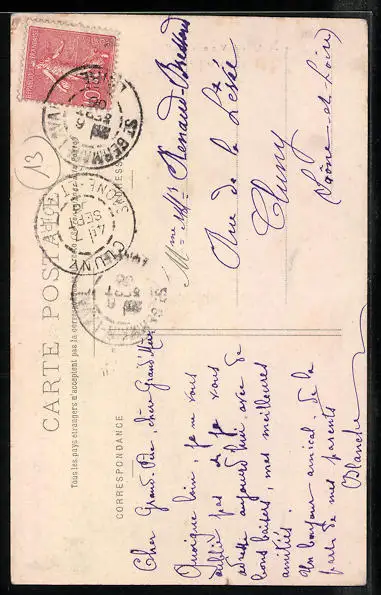 CARTE POSTALE
Tous les pays étrangers n'acceptent pas la correspondance
CORRESPONDANCE
ADRESSE
RÉPUBLIQUE FRANÇAISE
10
13
ST GERMAIN-LAVAL
CLUNY
SAÔNE-ET-
SEPT
Cher Grand-Père, chère Grand'Mère
Quoique loin, je ne vous
oublie pas et je vous
adresse aujourd'hui avec de
bons baisers, mes meilleures
amitiés.
Un bonjour amical de la
part de mes parents
Blanche
Mme Renaud
Rue de la
Cluny
Saône-et-Loire